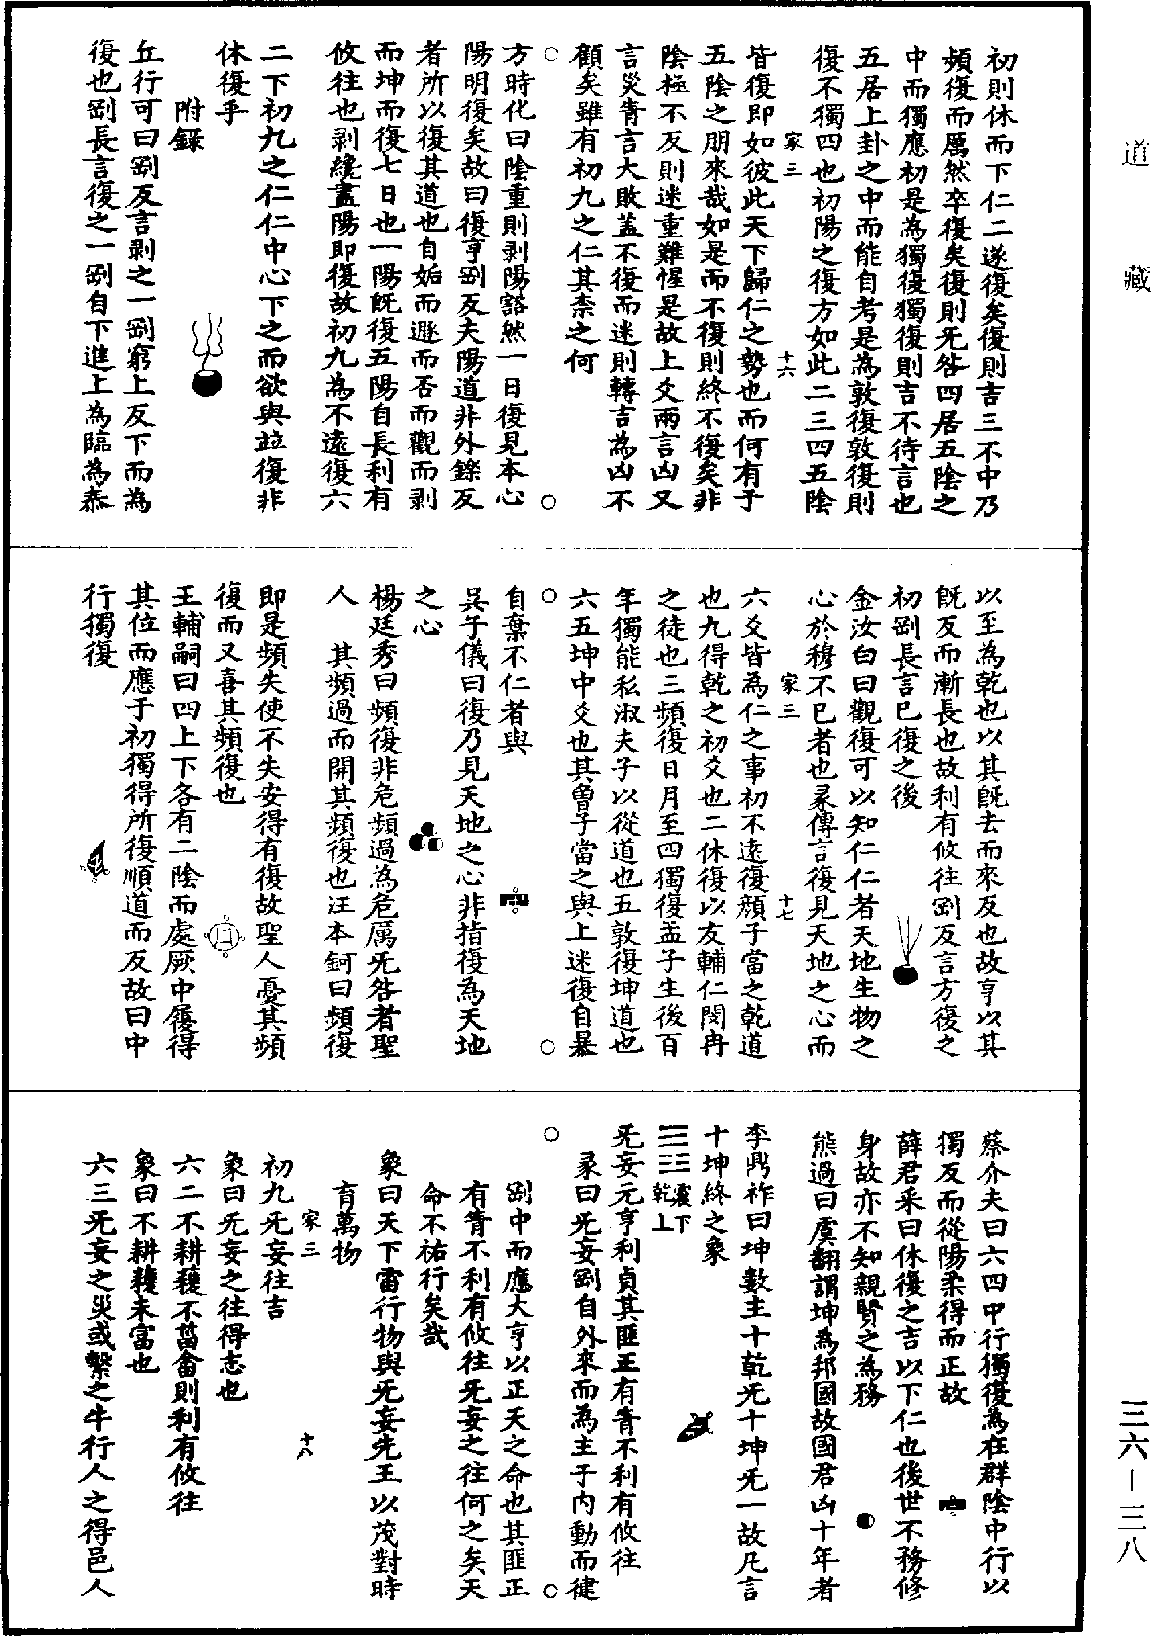 道藏
三六—三八
初則休而下仁二遂復矣復則吉三不中乃
頻復而厲然卒復矣復則旡咎四居五陰之
中而獨應初是為獨復獨復則吉不待言也
五居上卦之中而能自考是為敦復敦復則
復不獨四也初陽之復方如此二三四五陰
家三 十六
皆復即如彼此天下歸仁之勢也而何有于
五陰之朋來哉如是而不復則終不復矣非
陰極不反則迷重難惺是故上爻兩言凶又
言災眚言大敗盖不復而迷則轉吉為凶不
顧矣雖有初九之仁其柰之何
方時化曰陰重則剥陽豁然一日復見本心
陽明復矣故曰復亨剛反夫陽道非外鑠反
者所以復其道也自姤而遯而否而觀而剥
而坤而復七日也一陽旣復五陽自長利有
攸往也剥纔盡陽即復故初九為不遠復六
二下初九之仁仁中心下之而欲與並復非
休復乎
附錄
丘行可曰剛反言剥之一剛窮上反下而為
復也剛長言復之一剛自下進上為臨為泰
以至為乾也以其旣去而來反也故亨以其
旣反而漸長也故利有攸往剛反言方復之
初剛長言已復之後
金汝白曰觀復可以知仁仁者天地生物之
心於穆不已者也彖傳言復見天地之心而
家三 十七
六爻皆為仁之事初不遠復顏子當之乾道
也九得乾之初爻也二休復以友輔仁閔冉
之徒也三頻復日月至四獨復孟子生後百
年獨能私淑夫子以從道也五敦復坤道也
六五坤中爻也其曾子當之與上迷復自暴
自棄不仁者與
吳子儀曰復乃見天地之心非指復為天地
之心
楊廷秀曰頻復非危頻過為危厲旡咎者聖
人 其頻過而開其頻復也汪本鈳曰頻復
即是頻失使不失安得有復故聖人憂其頻
復而又喜其頻復也
王輔嗣曰四上下各有二陰而處厥中履得
其位而應于初獨得所復順道而反故曰中
行獨復
蔡介夫曰六四中行獨復為在群陰中行以
獨反而從陽柔得而正故
薛君采曰休復之吉以下仁也後世不務修
身故亦不知親賢之為務
熊過曰虞翻謂坤為邦國故國君凶十年者
李鼎祚曰坤數主十乾旡十坤旡一故凡言
十坤終之象
震下
乾上
旡妄元亨利貞其匪正有眚不利有攸往
彖曰旡妄剛自外來而為主于內動而健
剛中而應大亨以正天之命也其匪正
有眚不利有攸往旡妄之往何之矣天
命不祐行矣哉
象曰天下雷行物與旡妄先王以茂對時
育萬物
家三 十八
初九旡妄往吉
象曰旡妄之往得志也
六二不耕穫不菑畬則利有攸往
象曰不耕穫未富也
六三旡妄之災或繫之牛行人之得邑人